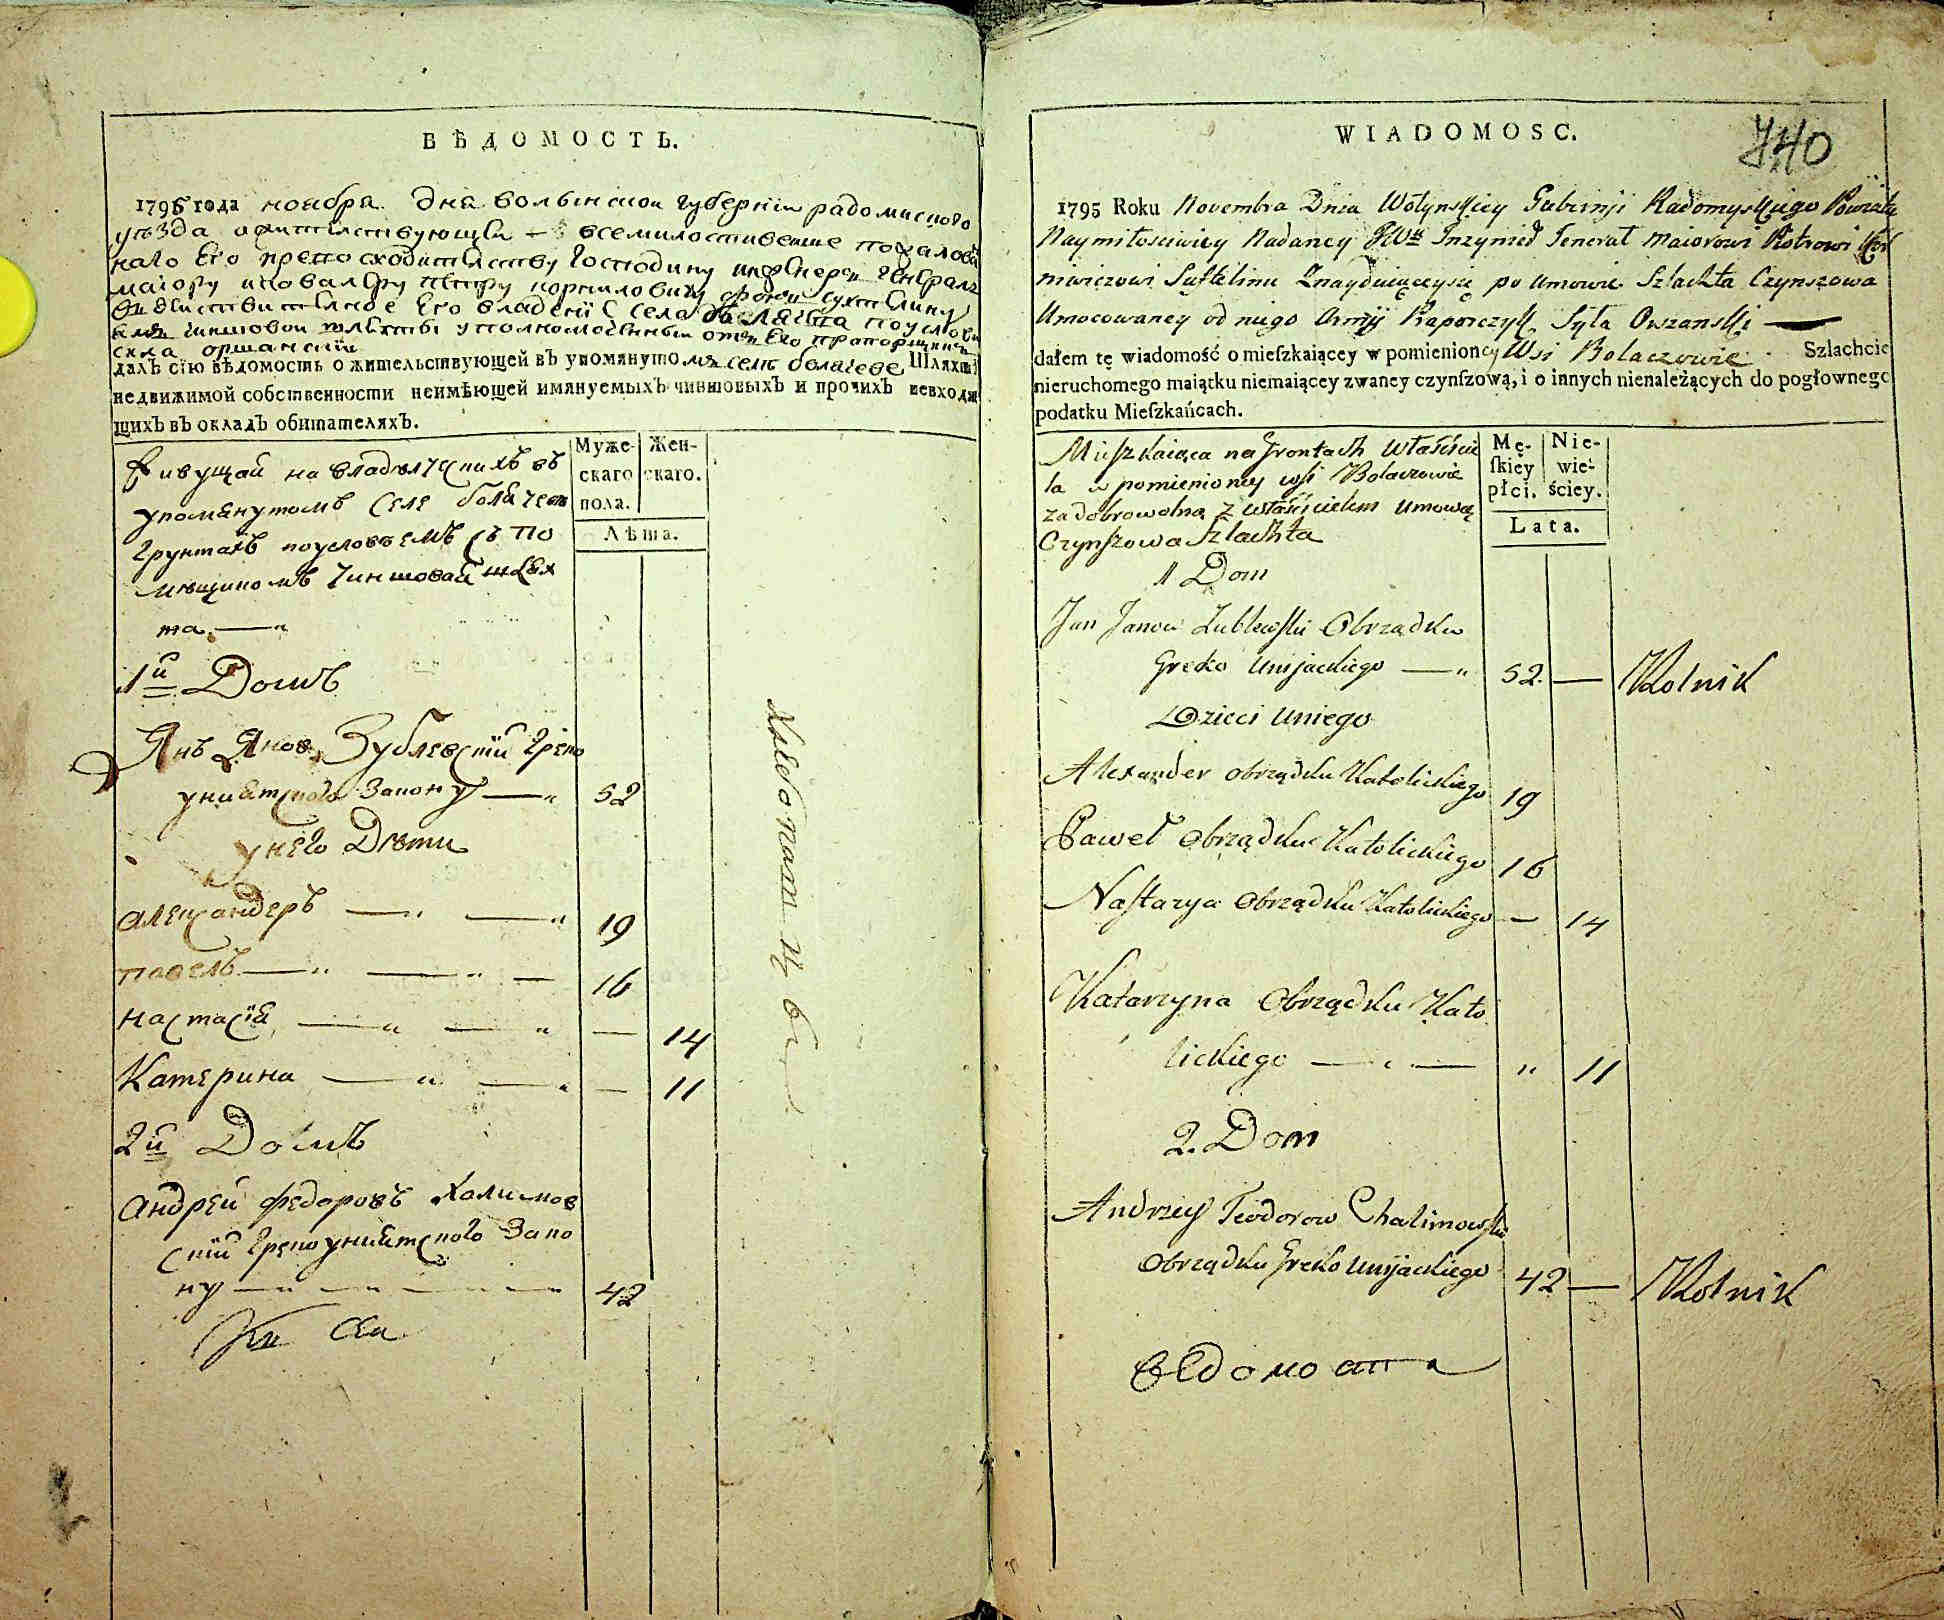 ВѢДОМОСТЬ.
1795 года ноября дня волынской губернїи радомыского
уѣзда всемилостивейше пожалован
наго Его превосходительству Господину инженеру Генералъ
маiору и кавалеру петру корниловичу сухтелину
Его владенїе села
чиншовой шляхты уполномоченный отъ Его прапорщикъ
сила оршанскїй
далъ сїю вѣдомость о жительствующей въ упомянутомъ селѣ болячеве Шляхты
недвижимой собственности неимѣющей имянуемыхъ чиншовыхъ и прочихъ невходя
щихъ въ окладъ обитателяхъ.
Живущай на владѣлческихъ въ
упомянутомъ селе болячеве
грунтахъ поусловъемъ съ по
мѣщикомъ чиншовай шлях
та
Муже- Жен-
скаго скаго.
пола.
Лѣта.
1й Домъ
Янъ Яновъ Зублевскїй греко
униятского Закону 52
у него Дѣти
александеръ 19
павелъ 16
настасїя — 14
Катерина — 11
2й Домъ
андрей федоровъ халимов
скїй грекоуниятского Зако
ну 42
WIADOMOSC.
740
1795 Roku Novembra Dnia Wołynskiey Gubernji Radomyskiego Powiatu
Naymiłosciwiey Nadaney JWu Inzynier Jenerał Maiorowi Piotrowi Kor
niwiczowi Suftelinu Znayduiąceysię po umowie Szlachta Czynszowa
Umocowaney od niego Armji Praporczyk Syła Orszanski —
dałem tę wiadomość o mieſzkaiącey w pomienioney Wsi Bolaczowie Szlachcie
nieruchomego maiątku niemaiącey zwaney czynſzową, i o innych nienależących do pogłownego
podatku Mieſzkańcach.
Mieszkaiąca na Grontach właścicie
la w pomienioney wsi Bolaczowie
za dobrowolną z właścicielem umową
Czynszowa Szlachta
Mę- Nie-
ſkiey wie-
płci. ściey.
Lata.
1 Dom
Jan Janow Zublewski Obrządku
Greko Unijackiego — 52 — Rolnik
Dzieci uniego
Alexander obrządku Katolickiego 19
Paweł Obrządku Katolickiego 16
Nastazya Obrządku Katolickiego — 14
Katarzyna Obrządku Kato
lickiego — „ 11
2. Dom
Andrzey Teodorow Chalimowski
Obrządku Greko Unijackiego 42 — Rolnik